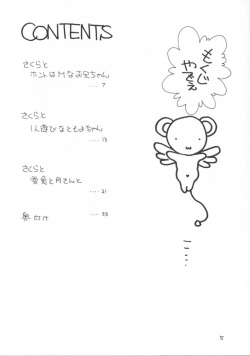 CONTENTS
さくらと
ホントはMなお兄ちゃん
····· 7
さくらと
1人遊びなともよちゃん
····· 13
さくらと
雪兎と月さんと
····· 21
奥付け
····· 30
もくじ
やでぇ
5